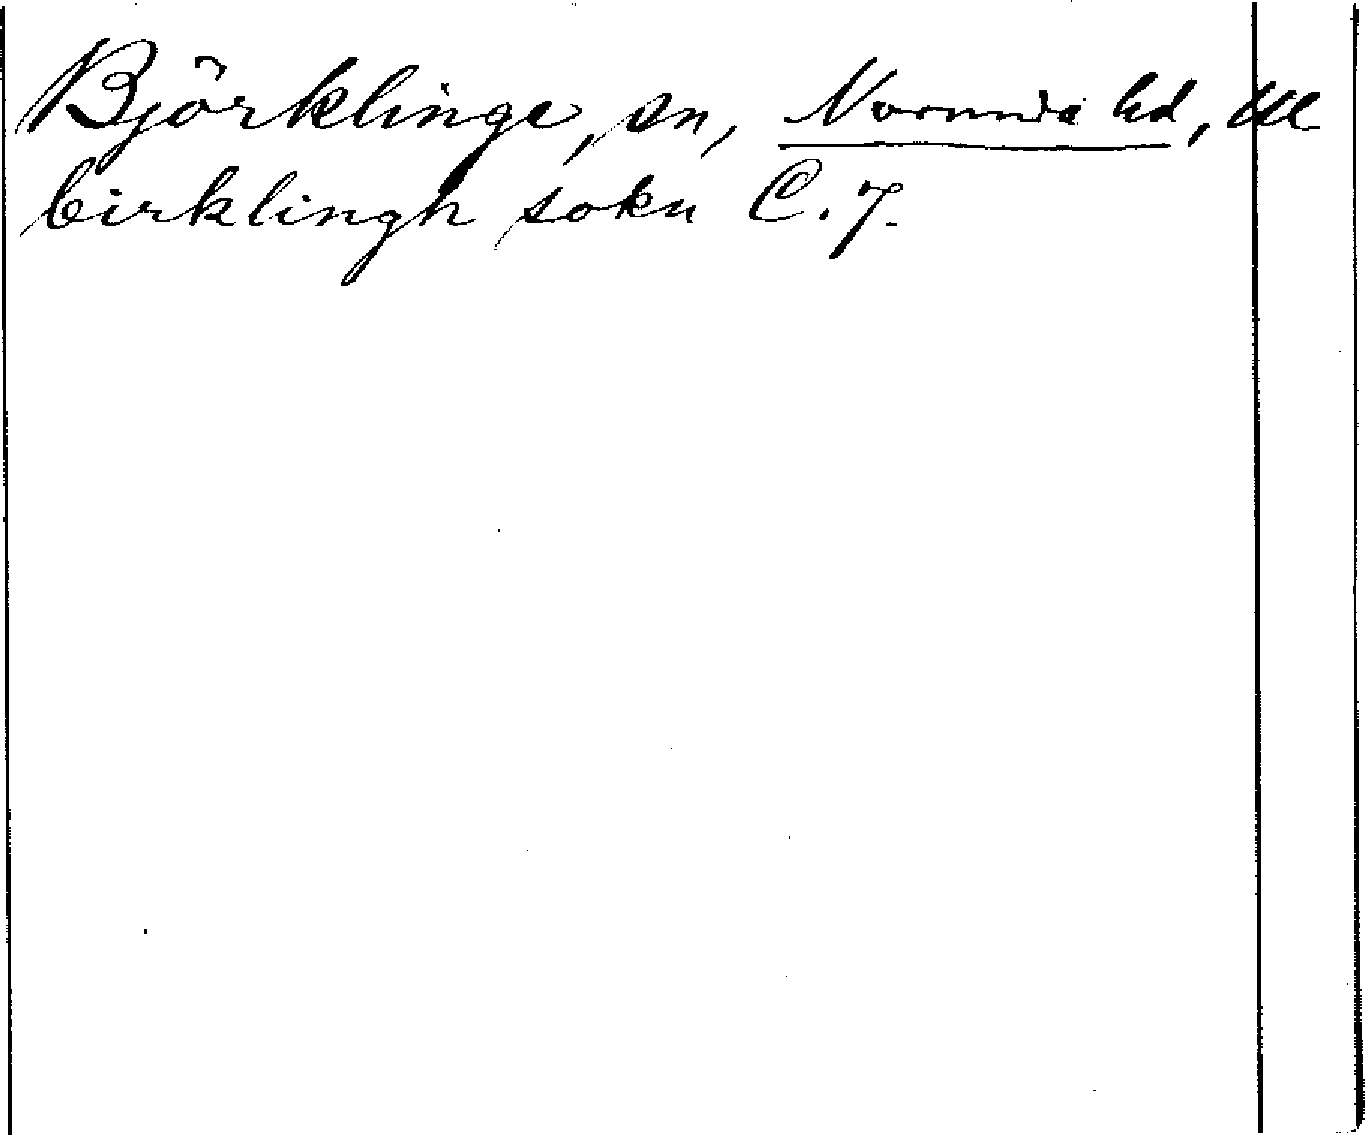 Björklinge, sn, Norunda hd, Upl
birklingh sokn C. 7.